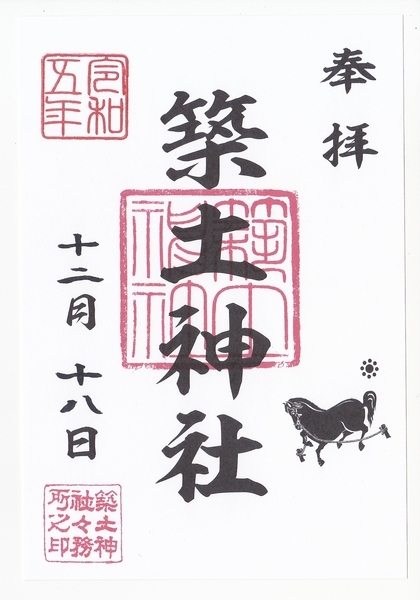 奉拝
築土神社
築土神社
令和五年
十二月十八日
築土神社々務所之印